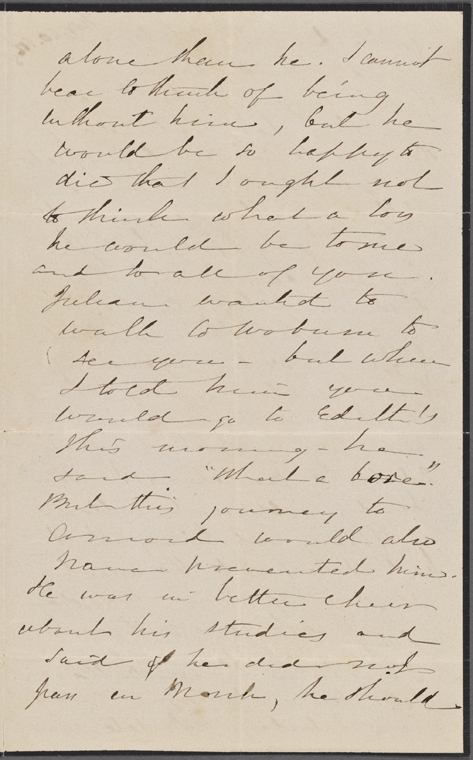 alone than he. I cannot
bear to think of being
without him, but he
would be so happy to
die that I ought not
to think what a loss
he would be to me
and to all of you.
Julian wanted to
walk to Woburn to
see you - but when
I told him you
would go to Edith's
this morning - he
said "What a bore".
But this journey to
Concord would also
have prevented him.
He was in better cheer
about his studies and
said if he did not
pass in Math, he should